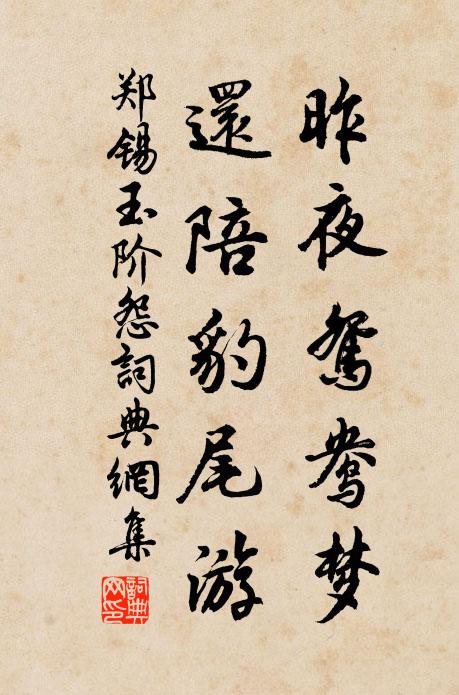 昨夜鸳鸯梦
還陪豹尾游
郑锡玉阶怨詞典網集
詞典網印